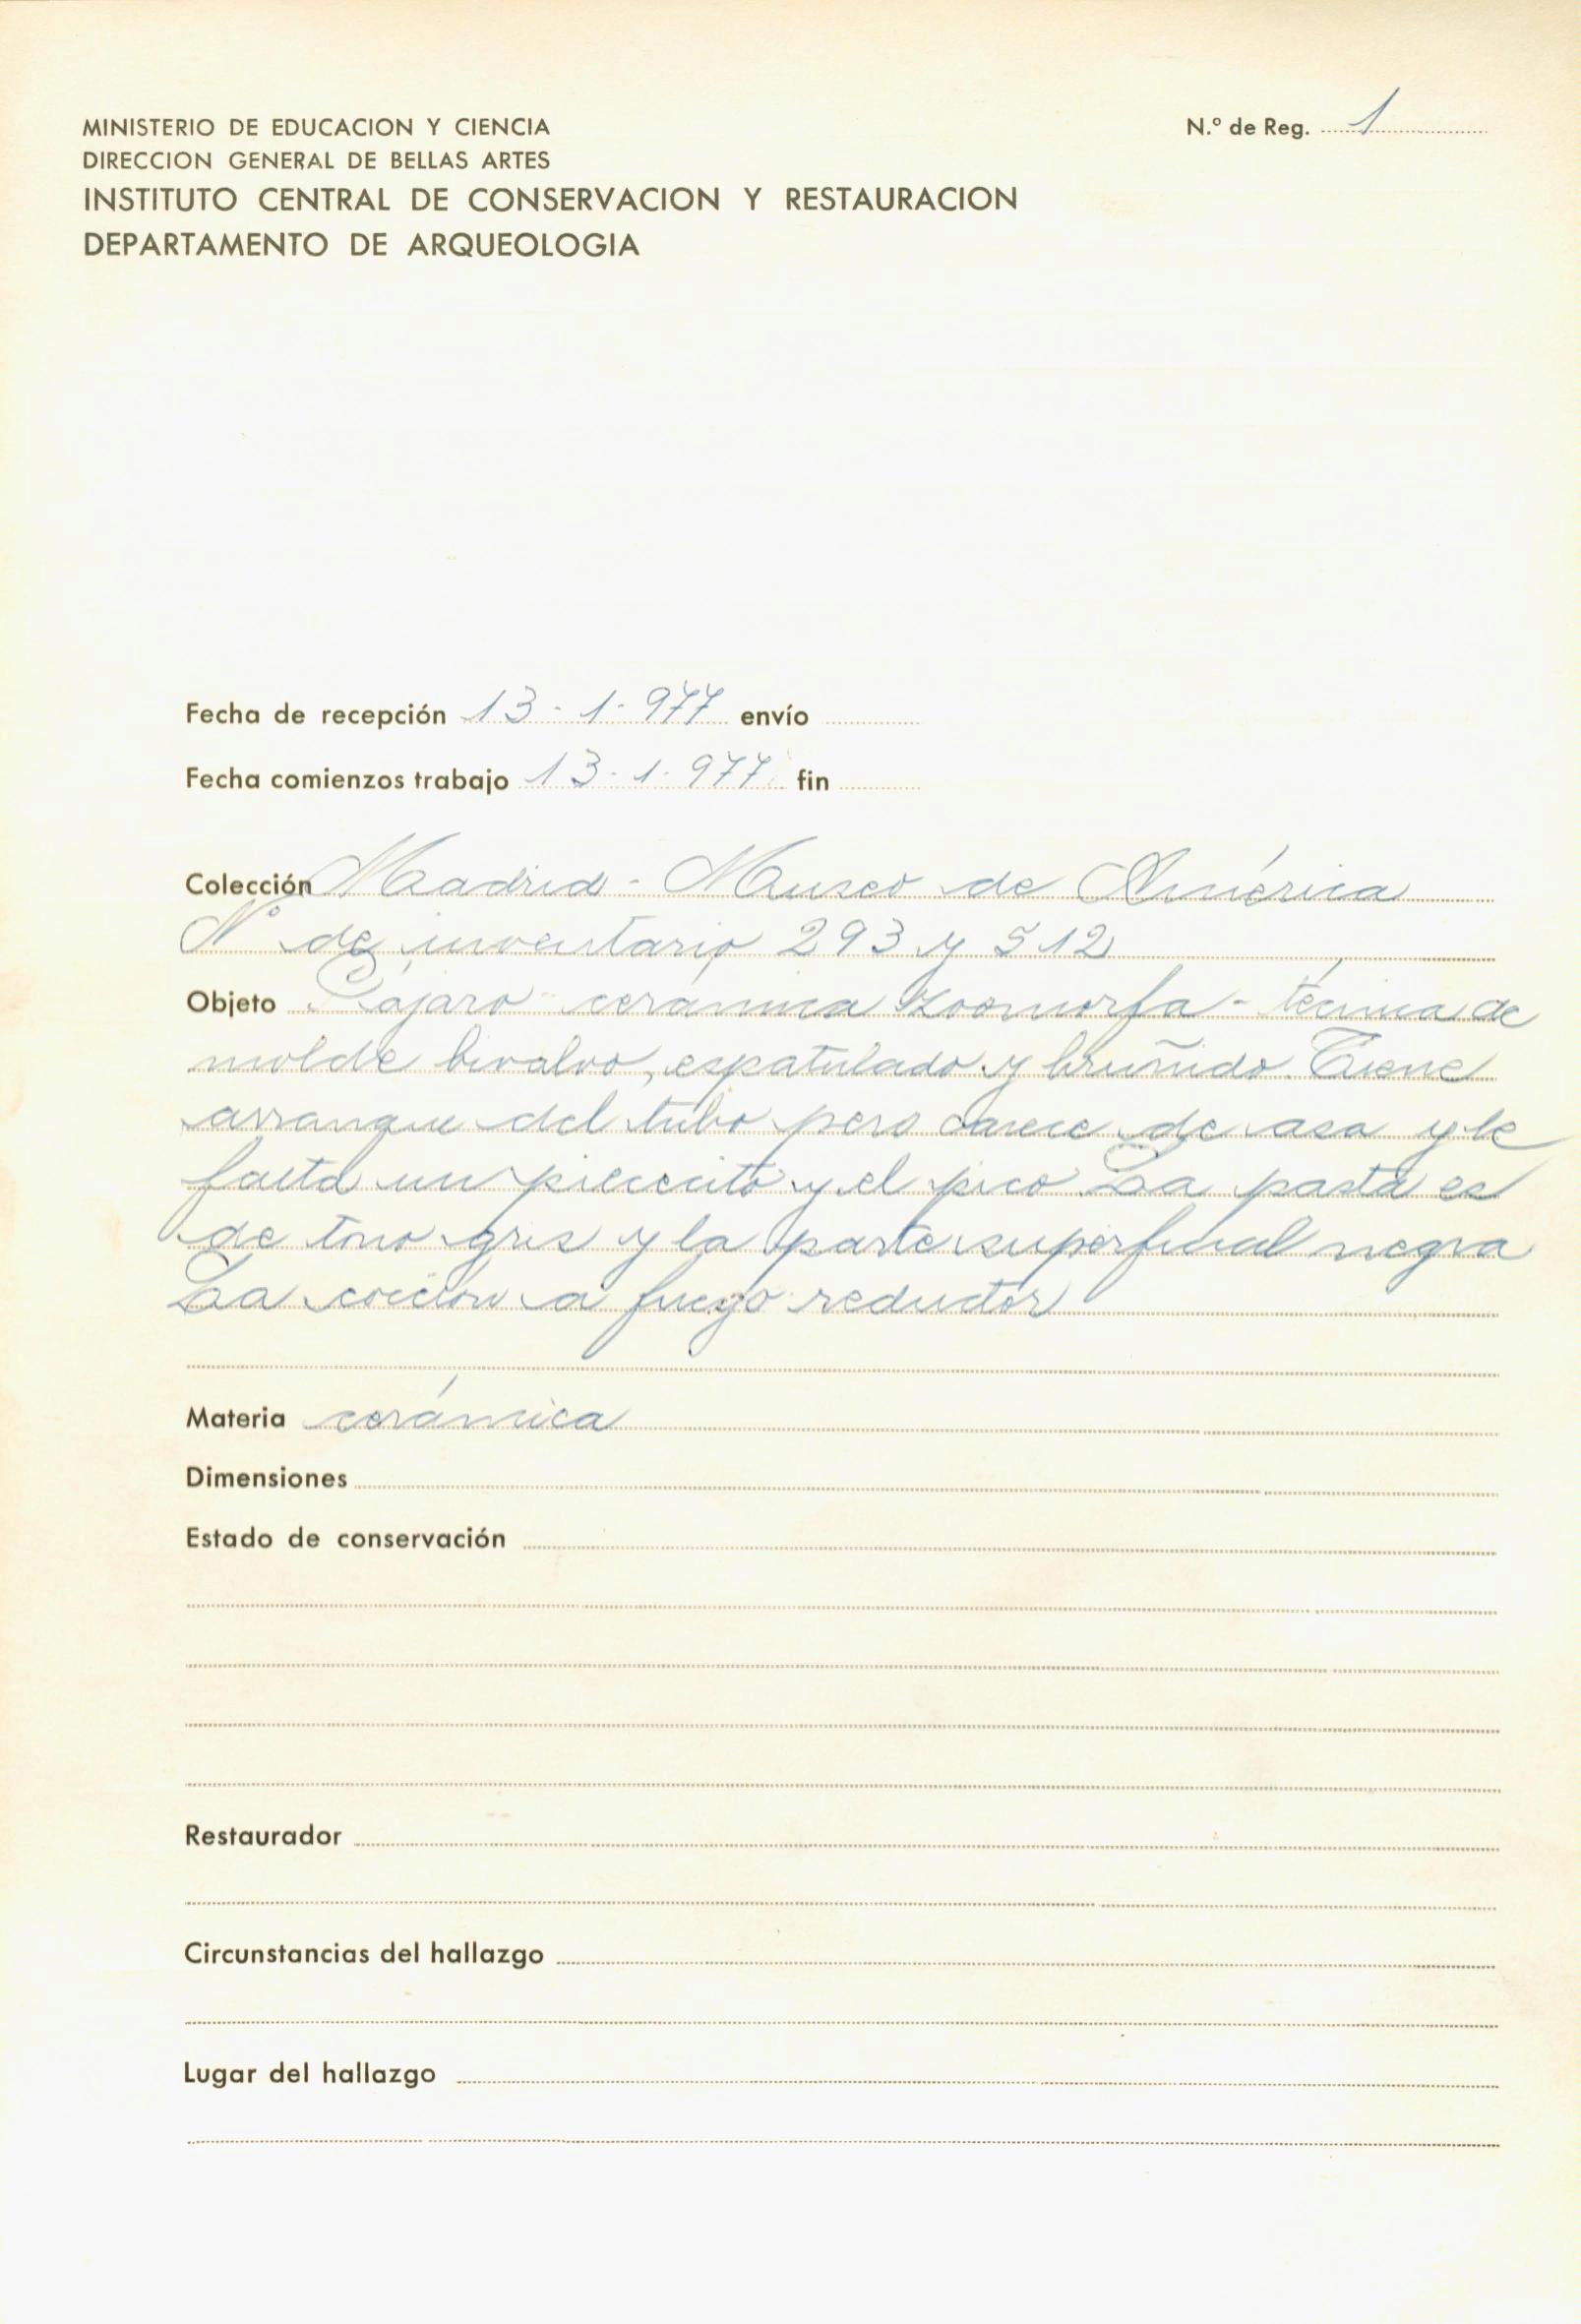 MINISTERIO DE EDUCACION Y CIENCIA
N.º de Reg. 1
DIRECCION GENERAL DE BELLAS ARTES
INSTITUTO CENTRAL DE CONSERVACION Y RESTAURACION
DEPARTAMENTO DE ARQUEOLOGIA
Fecha de recepción 13-1-977 envío
Fecha comienzos trabajo 13-1-977 fin
Colección Madrid - Museo de América
Nº de inventario 293 y 512
Objeto Pájaro - cerámica zoomorfa - técnica de
molde bivalvo, espatulado y bruñido. Tiene
arranque del tubo pero carece de asa y le
falta un piececito y el pico La pasta es
de tono gris y la parte superficial negra
La cocción a fuego reductor
Materia cerámica
Dimensiones
Estado de conservación
Restaurador
Circunstancias del hallazgo
Lugar del hallazgo